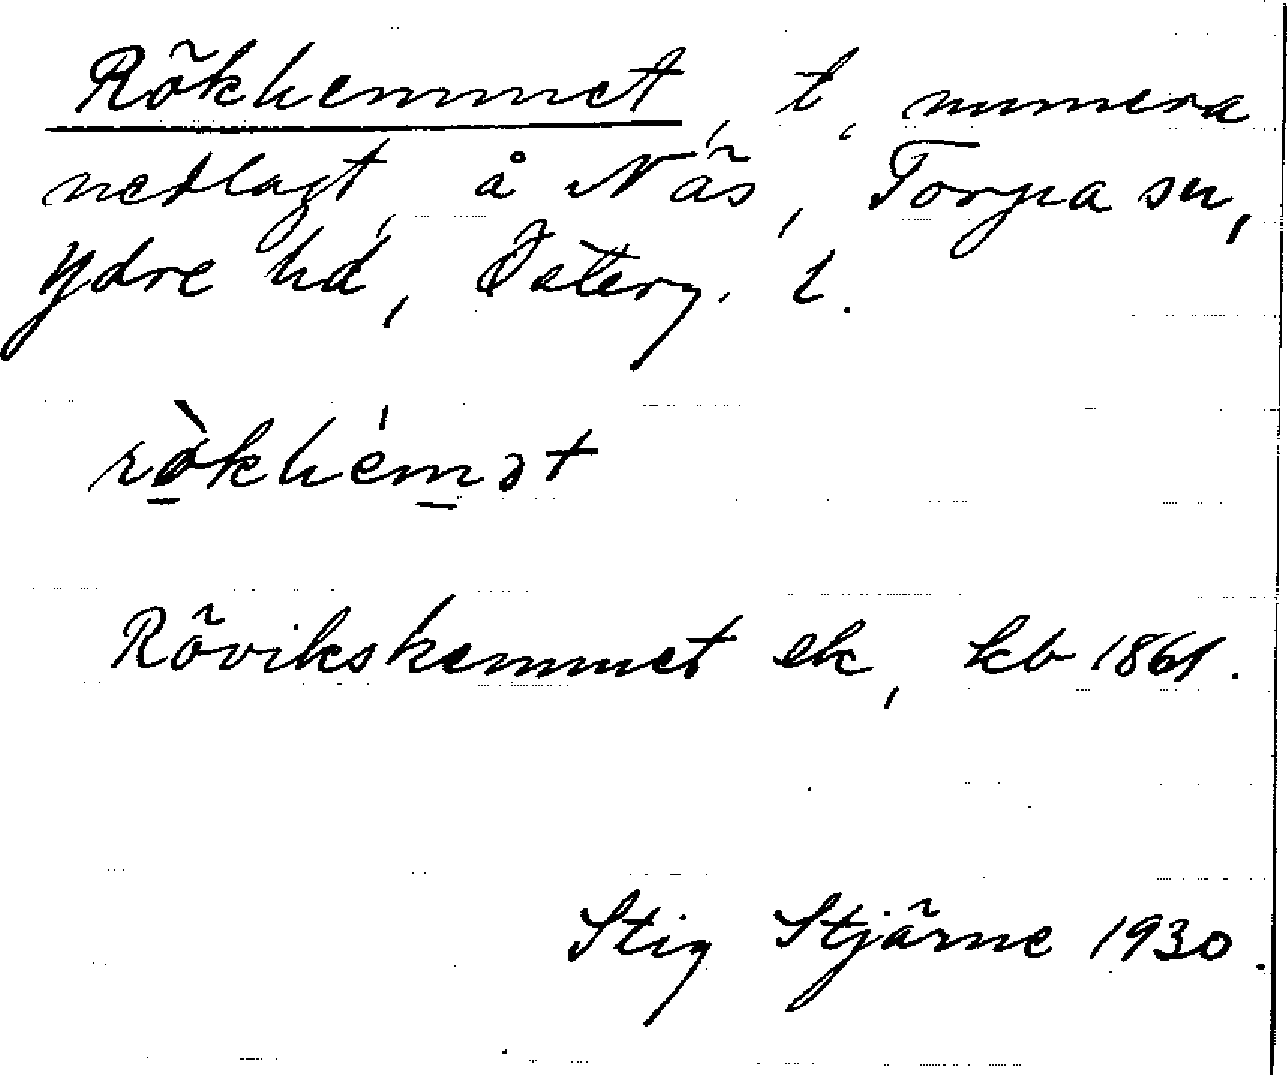 Rökhemmet, t, numera
nedlagt, å Näs, Torpa sn,
Ydre hd, Österg. l.
rö̀khémət
Rövikshemmet ek, kb 1861.
Stig Stjärne 1930.